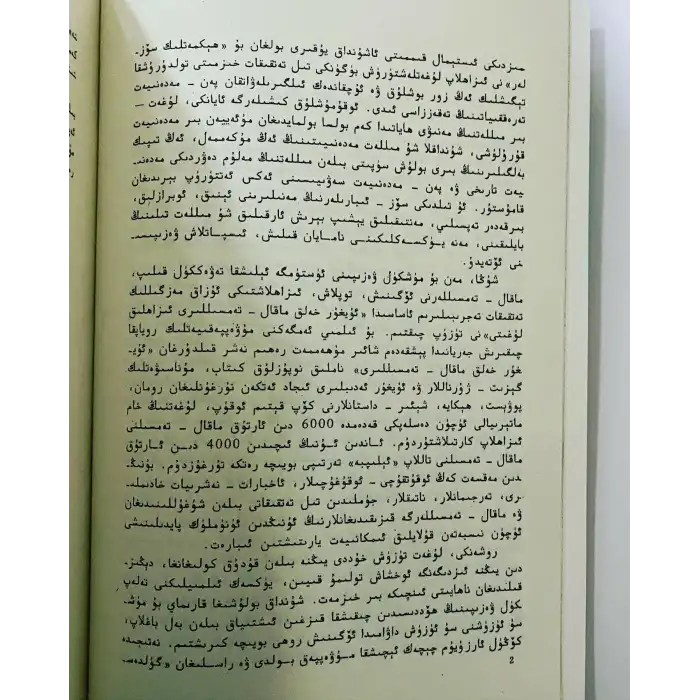 مىزدىكى ئىستېمال قىممىتى ئاشۇنداق يۇقىرى بولغان بۇ «ھېكمەتلىك سۆز-
لەر»نى ئىزاھلاپ لۇغەتلەشتۈرۈش بۈگۈنكى تىل تەتقىقات خىزمىتى تولدۇرۇشقا
تېگىشلىك ئەڭ زور بوشلۇق ۋە ئۇچقاندەك ئىلگىرىلەۋاتقان پەن - مەدەنىيەت
تەرەققىياتىنىڭ تەقەززاسى ئىدى. ئوقۇمۇشلۇق كىشىلەرگە ئايانكى، لۇغەت —
بىر مىللەتنىڭ مەنىۋى ھاياتىدا كەم بولسا بولمايدىغان مۇئەييەن بىر مەدەنىيەت
قۇرۇلۇشى، شۇنداقلا شۇ مىللەت مەدەنىيىتىنىڭ ئەڭ مۇكەممەل، ئەڭ تىپىك
بەلگىلىرىنىڭ بىرى بولۇش سۈپىتى بىلەن مىللەتنىڭ مەلۇم دەۋردىكى مەدەنى-
يەت تارىخى ۋە پەن - مەدەنىيەت سەۋىيىسىنى ئەكس ئەتتۈرۈپ بېرىدىغان
قامۇستۇر. ئۇ تىلدىكى سۆز - ئىبارىلەرنىڭ مەنىلىرىنى ئېنىق، ئوبرازلىق،
بىرقەدەر تەپسىلىي، مەنتىقىلىق يېشىپ بېرىش ئارقىلىق شۇ مىللەت تىلىنىڭ
بايلىقىنى، مەنە يۈكسەكلىكىنى نامايان قىلىش، ئىسپاتلاش ۋەزىپىسى-
نى ئۆتەيدۇ.
شۇڭا، مەن بۇ مۈشكۈل ۋەزىپىنى ئۈستۈمگە ئېلىشقا تەۋەككۈل قىلىپ،
ماقال - تەمسىللەرنى ئۆگىنىش، توپلاش، ئىزاھلاشتىكى ئۇزاق مەزگىللىك
تەتقىقات تەجرىبىلىرىم ئاساسىدا «ئۇيغۇر خەلق ماقال - تەمسىللىرى ئىزاھلىق
لۇغىتى»نى تۈزۈپ چىقتىم. بۇ ئىلمىي ئەمگەكنى مۇۋەپپەقىيەتلىك روياپقا
چىقىرىش جەريانىدا پېشقەدەم شائىر مۇھەممەت رەھىم نەشر قىلدۇرغان «ئۇي-
غۇر خەلق ماقال - تەمسىللىرى» ناملىق نوپۇزلۇق كىتاب، مۇناسىۋەتلىك
گېزىت - ژۇرناللار ۋە ئۇيغۇر ئەدىبلىرى ئىجاد ئەتكەن نۇرغۇنلىغان رومان،
پوۋېست، ھېكايە، شېئىر - داستانلارنى كۆپ قېتىم ئوقۇپ، لۇغەتنىڭ خام
ماتېرىيالى ئۈچۈن دەسلەپكى قەدەمدە 6000 دىن ئارتۇق ماقال - تەمسىلنى
ئىزاھلاپ كارتىلاشتۇردۇم. ئاندىن ئۇنىڭ ئىچىدىن 4000 دىن ئارتۇق
ماقال - تەمسىلنى تاللاپ «ئېلىپبە» تەرتىپى بويىچە رەتكە تۇرغۇزدۇم. بۇنىڭ-
دىن مەقسەت كەڭ ئوقۇتقۇچى - ئوقۇغۇچىلار، ئاخبارات - نەشرىيات خادىملى-
رى، تەرجىمانلار، ناتىقلار، جۈملىدىن تىل تەتقىقاتى بىلەن شۇغۇللىنىدىغان
ۋە ماقال - تەمسىللەرگە قىزىقىدىغانلارنىڭ ئۇنىڭدىن ئۈنۈملۈك پايدىلىنىشى
ئۈچۈن نىسبەتەن قۇلايلىق ئىمكانىيەت يارىتىشتىن ئىبارەت.
روشەنكى، لۇغەت تۈزۈش خۇددى يىڭنە بىلەن قۇدۇق كولىغانغا، دېڭىز-
دىن يىڭنە ئىزدىگەنگە ئوخشاش تولىمۇ قىيىن، يۈكسەك ئىلمىيلىكنى تەلەپ
قىلىدىغان ناھايىتى ئىنچىكە بىر خىزمەت. شۇنداق بولۇشىغا قارىماي بۇ مۈش-
كۈل ۋەزىپىنىڭ ھۆددىسىدىن چىقىشقا قىزغىن ئىشتىياق بىلەن بەل باغلاپ،
سۇ ئۈزۈشنى سۇ ئۈزۈش داۋامىدا ئۆگىنىش روھى بويىچە كىرىشتىم. نەتىجىدە
كۆڭۈل ئارزۇيۇم چېچەك ئېچىشقا مۇۋەپپەق بولدى ۋە راسلىغان «گۈلدەس-
2